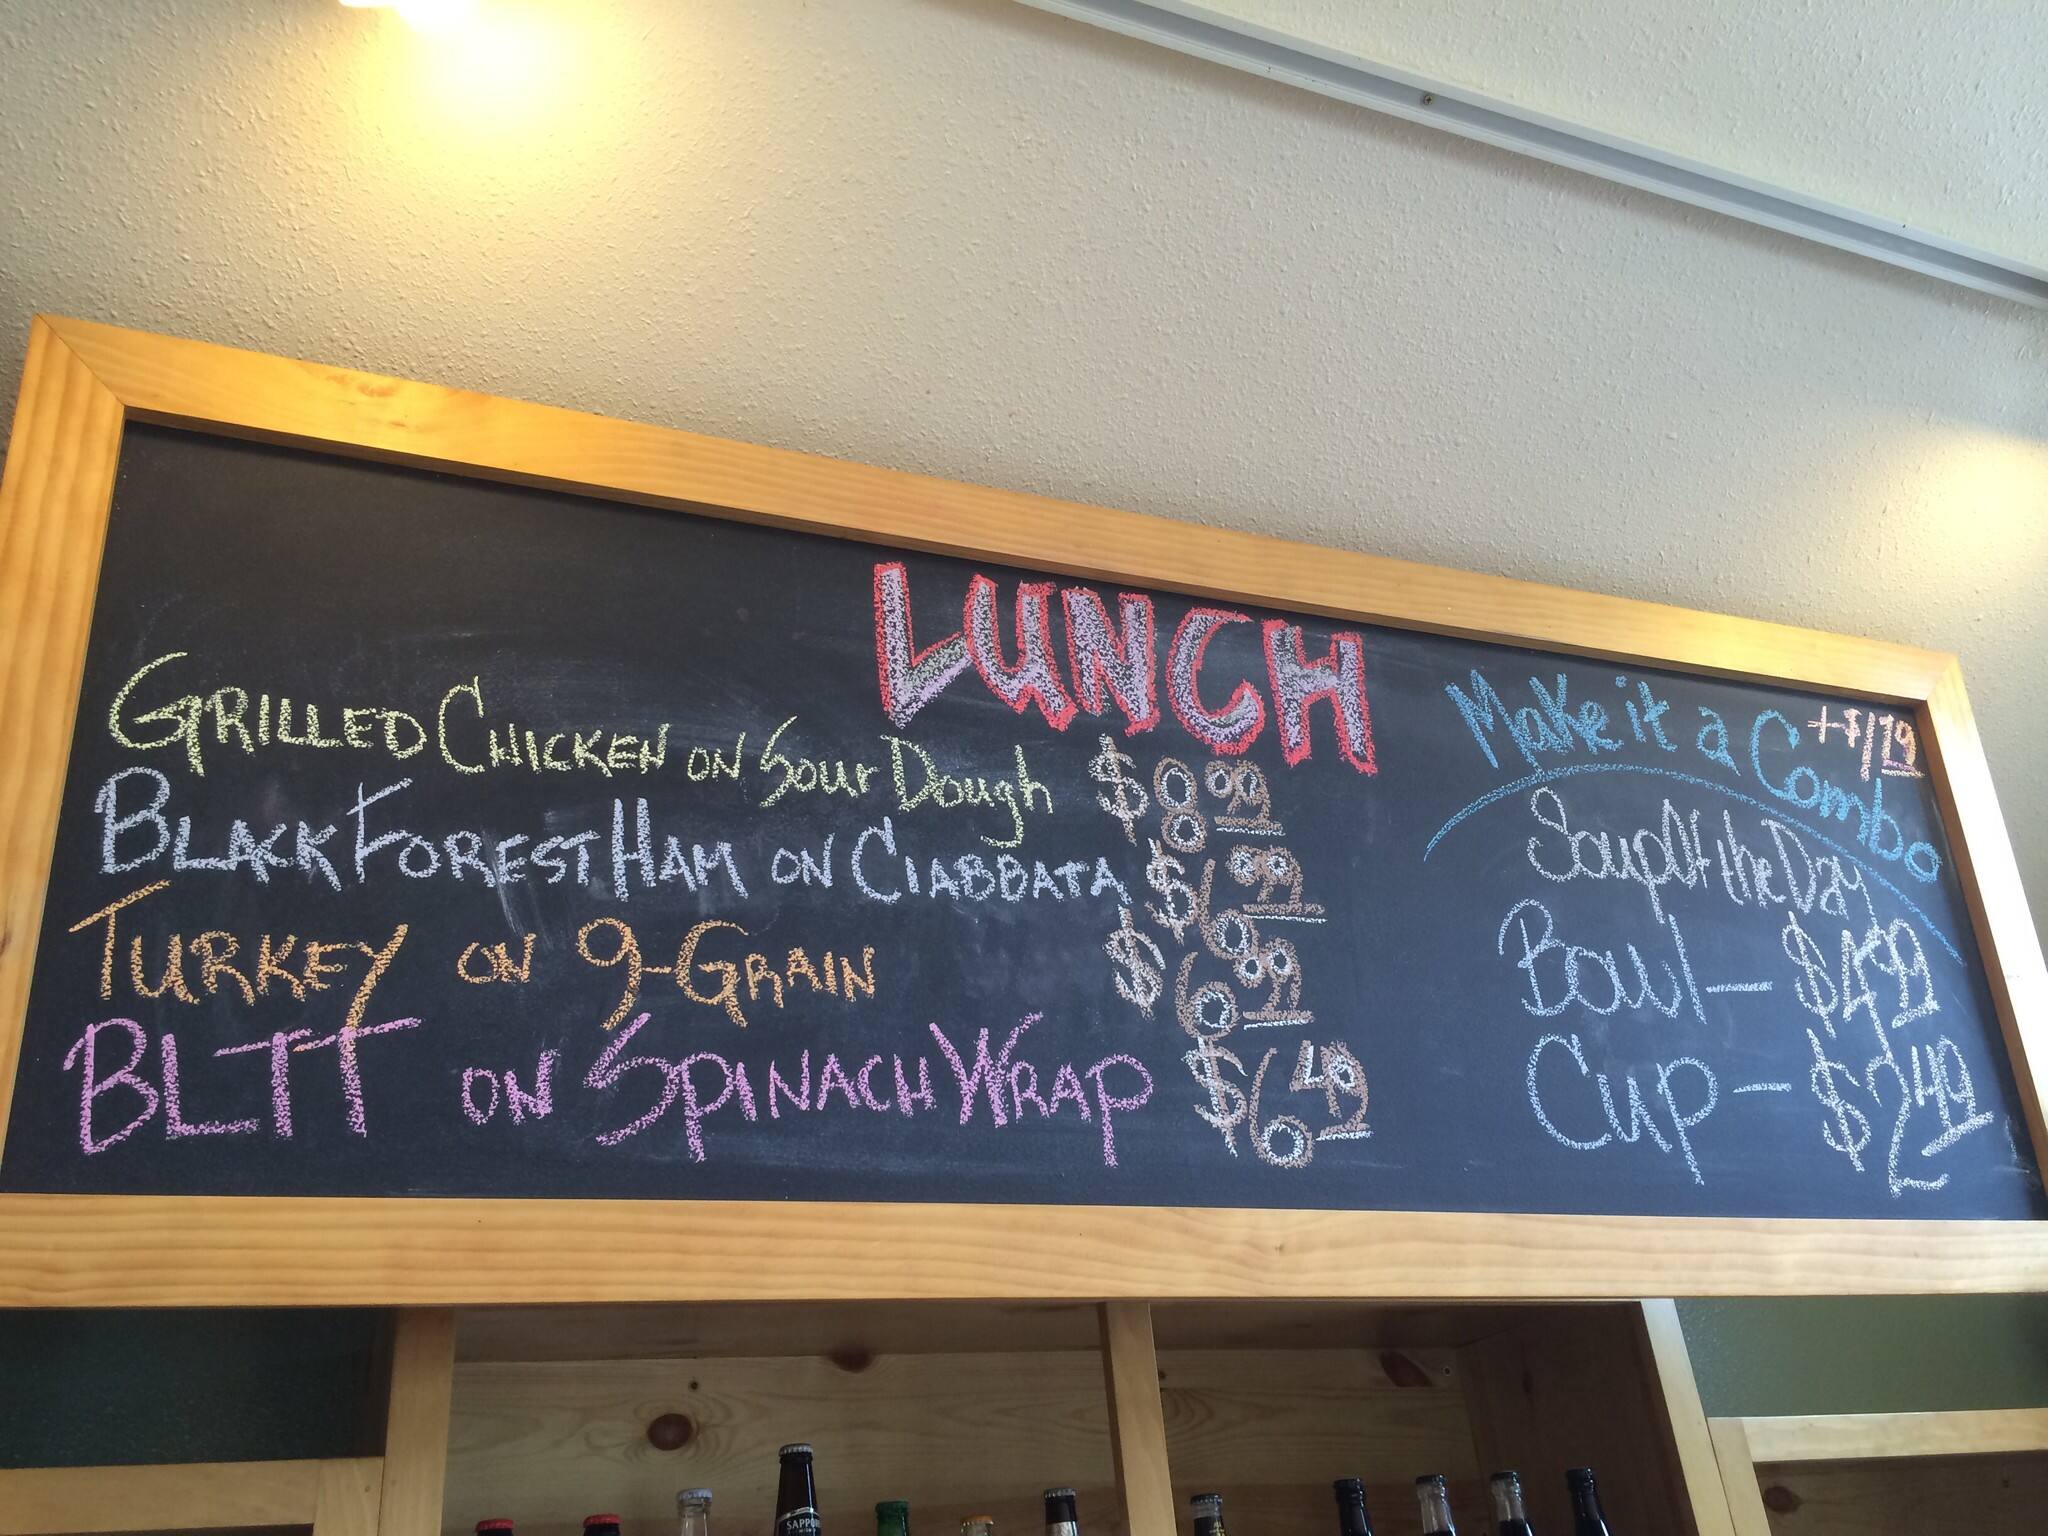 LUNCH
GRILLED CHICKEN ON Sour Dough $8.99
BLACK FOREST HAM ON CIABBATA $6.99
TURKEY ON 9-GRAIN $6.99
BLTT ON SPINACH WRAP $6.49
Make it a Combo +$1.79
Soup Of the Day
Bowl - $4.99
Cup - $2.49
SAPPORO